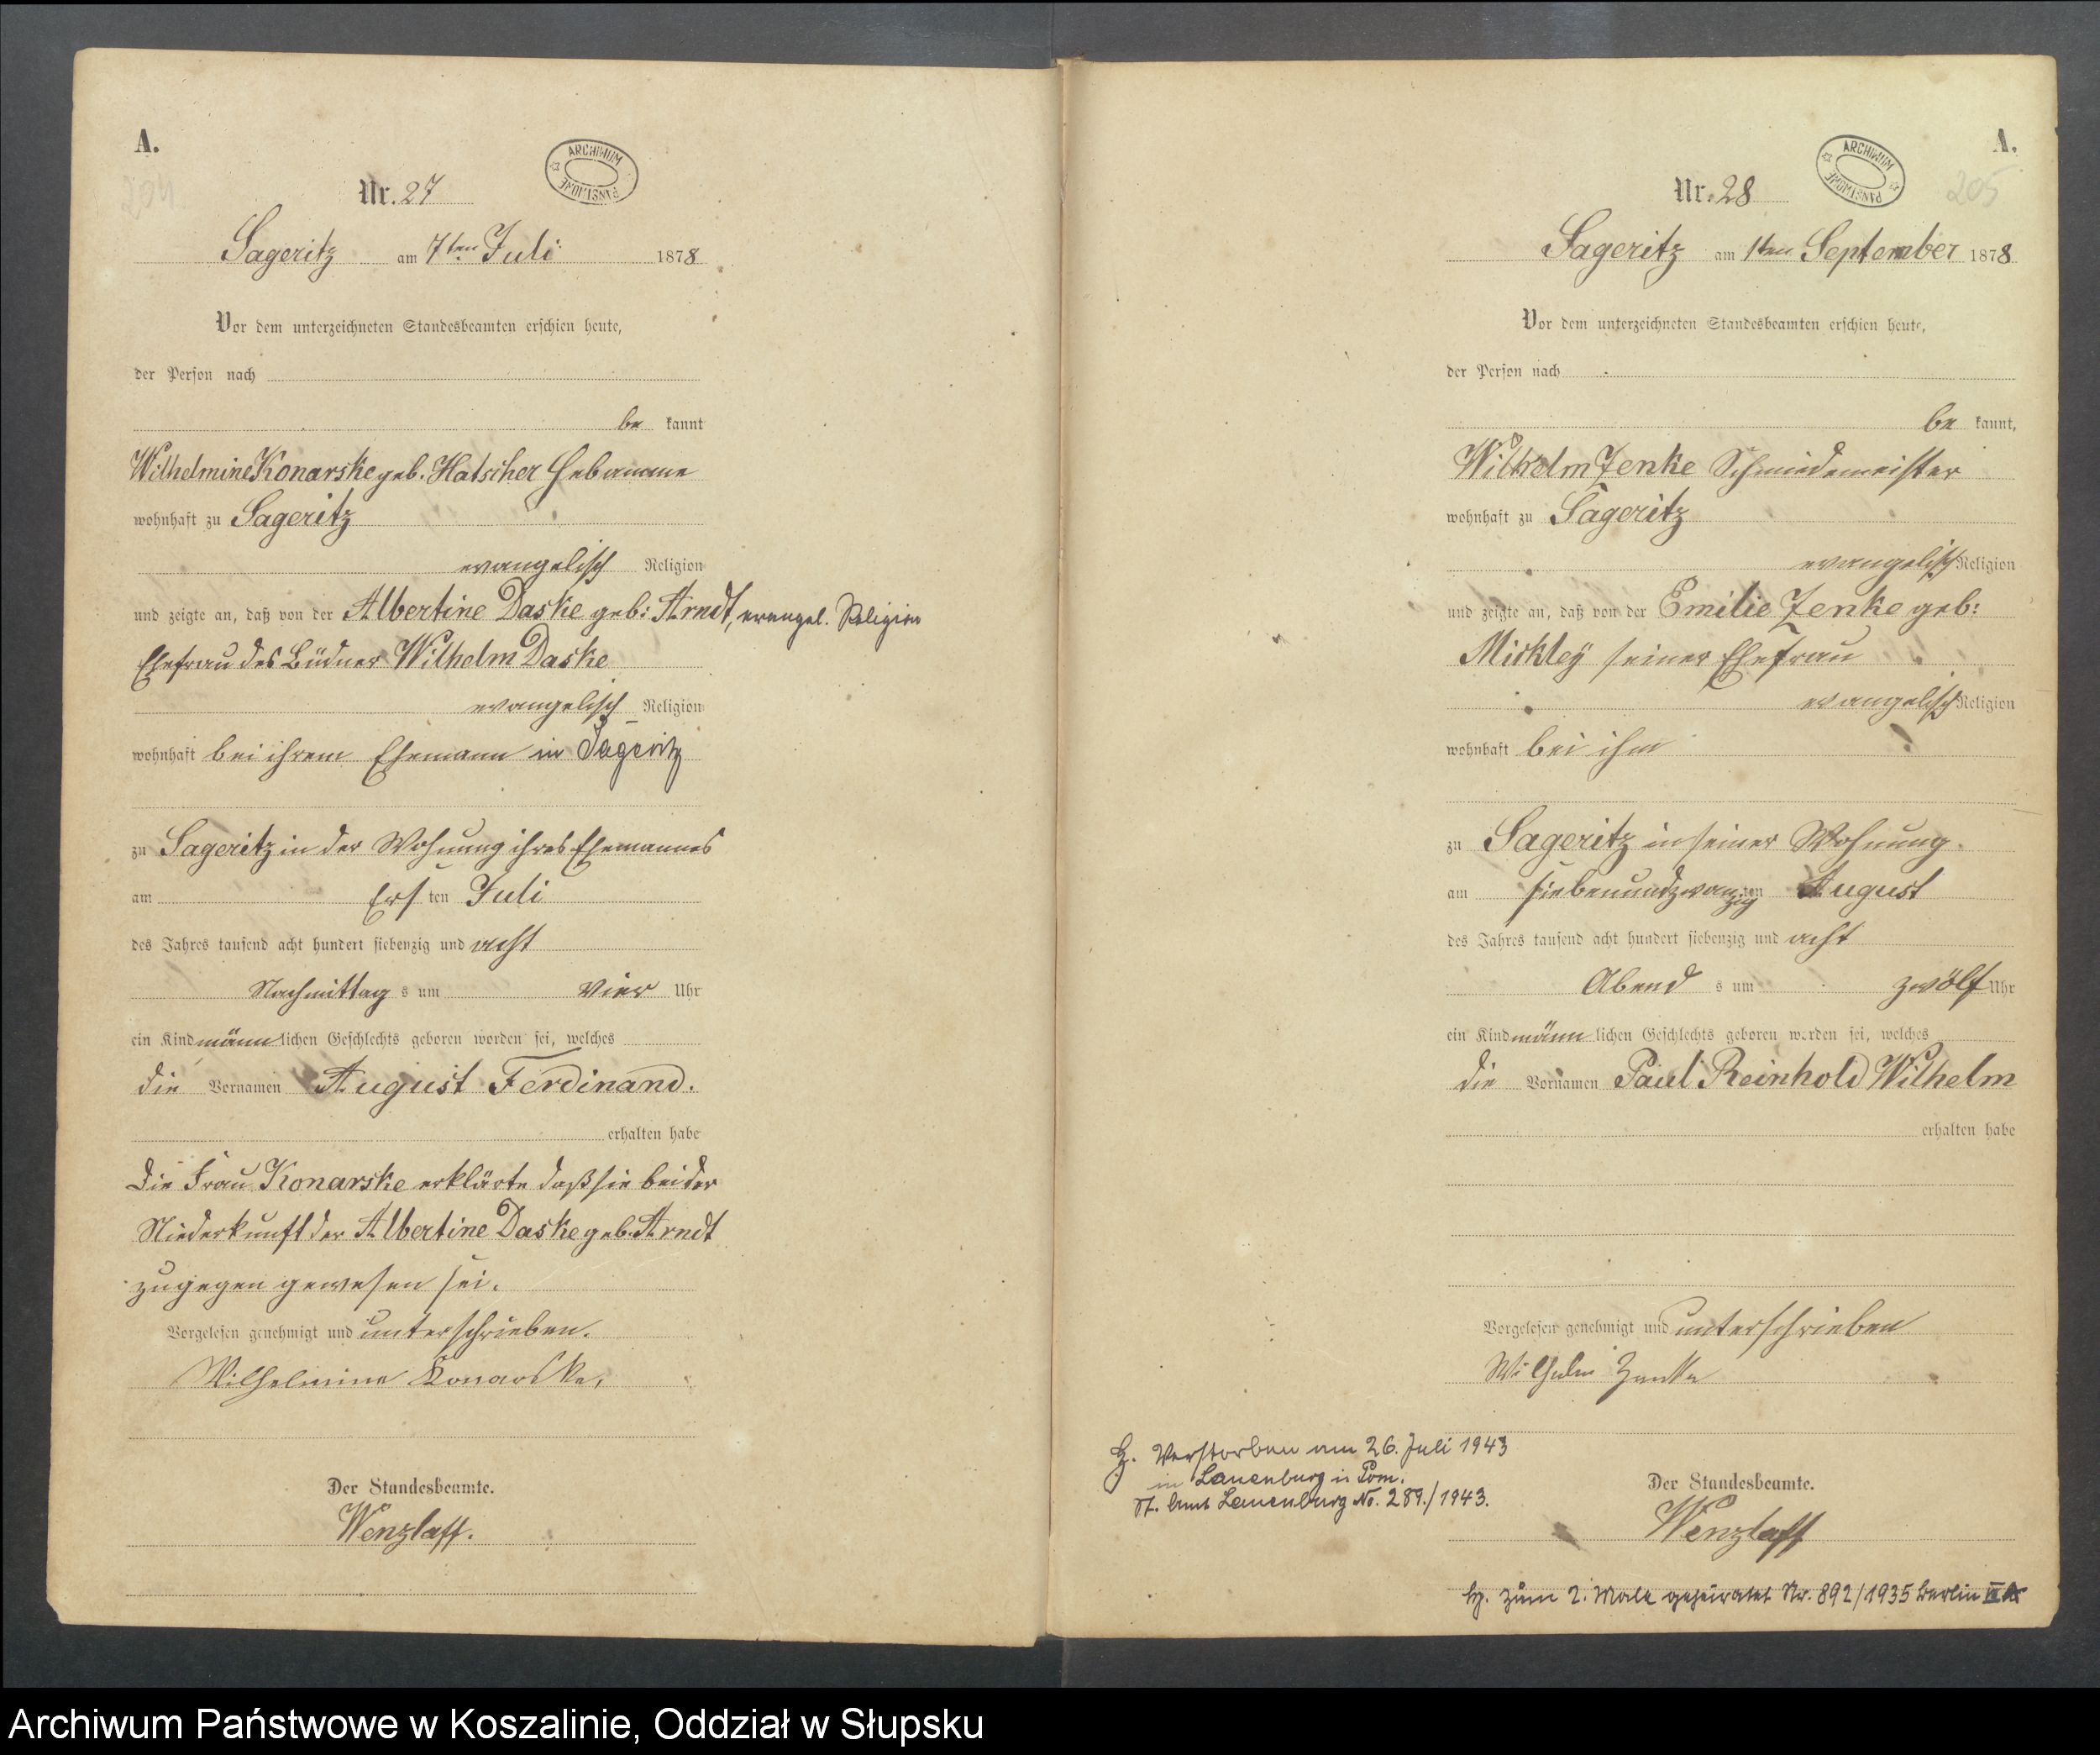 A.
204
Nr. 27
ARCHIWUM PAŃSTWOWE
Sageritz am 7ten Juli 1878
Vor dem unterzeichneten Standesbeamten erschien heute,
der Person nach
be kannt
Wilhelmine Konarske geb. Hatscher Hebamme
wohnhaft zu Sageritz
evangelisch Religion
und zeigte an, daß von der Albertine Daske geb: Arndt, evangel. Religion
Ehefrau des Büdner Wilhelm Daske
evangelisch Religion
wohnhaft bei ihrem Ehemann in Sageritz
zu Sageritz in der Wohnung ihres Ehemannes
am Ers ten Juli
des Jahres tausend acht hundert siebenzig und acht
Nachmittag s um vier Uhr
ein Kind männ lichen Geschlechts geboren worden sei, welches
die Vornamen August Ferdinand.
erhalten habe
Die Frau Konarske erklärte daß sie bei der
Niederkunft der Albertine Daske geb. Arndt
zugegen gewesen sei.
Vorgelesen genehmigt und unterschrieben.
Wilhelmine Konarske,
Der Standesbeamte.
Wenzlaff.
A.
205
Nr. 28
ARCHIWUM PAŃSTWOWE
Sageritz am 1ten September 1878
Vor dem unterzeichneten Standesbeamten erschien heute,
der Person nach
be kannt,
Wilhelm Jenke Schmiedemeister
wohnhaft zu Sageritz
evangelisch Religion
und zeigte an, daß von der Emilie Jenke geb:
Mickley seiner Ehefrau
evangelisch Religion
wohnhaft bei ihm
zu Sageritz in seiner Wohnung.
am siebenundzwanzig ten August
des Jahres tausend acht hundert siebenzig und acht
Abend s um zwölf Uhr
ein Kind männ lichen Geschlechts geboren worden sei, welches
die Vornamen Paul Reinhold Wilhelm
erhalten habe
Vorgelesen genehmigt und unterschrieben
Wilhelm Jenke
H. Verstorben am 26. Juli 1943
in Lauenburg in Pom.
St. Amt Lauenburg No. 289./1943.
Der Standesbeamte.
Wenzlaff
H. zum 2. Male geheiratet Nr. 892/1935 Berlin
Archiwum Państwowe w Koszalinie, Oddział w Słupsku